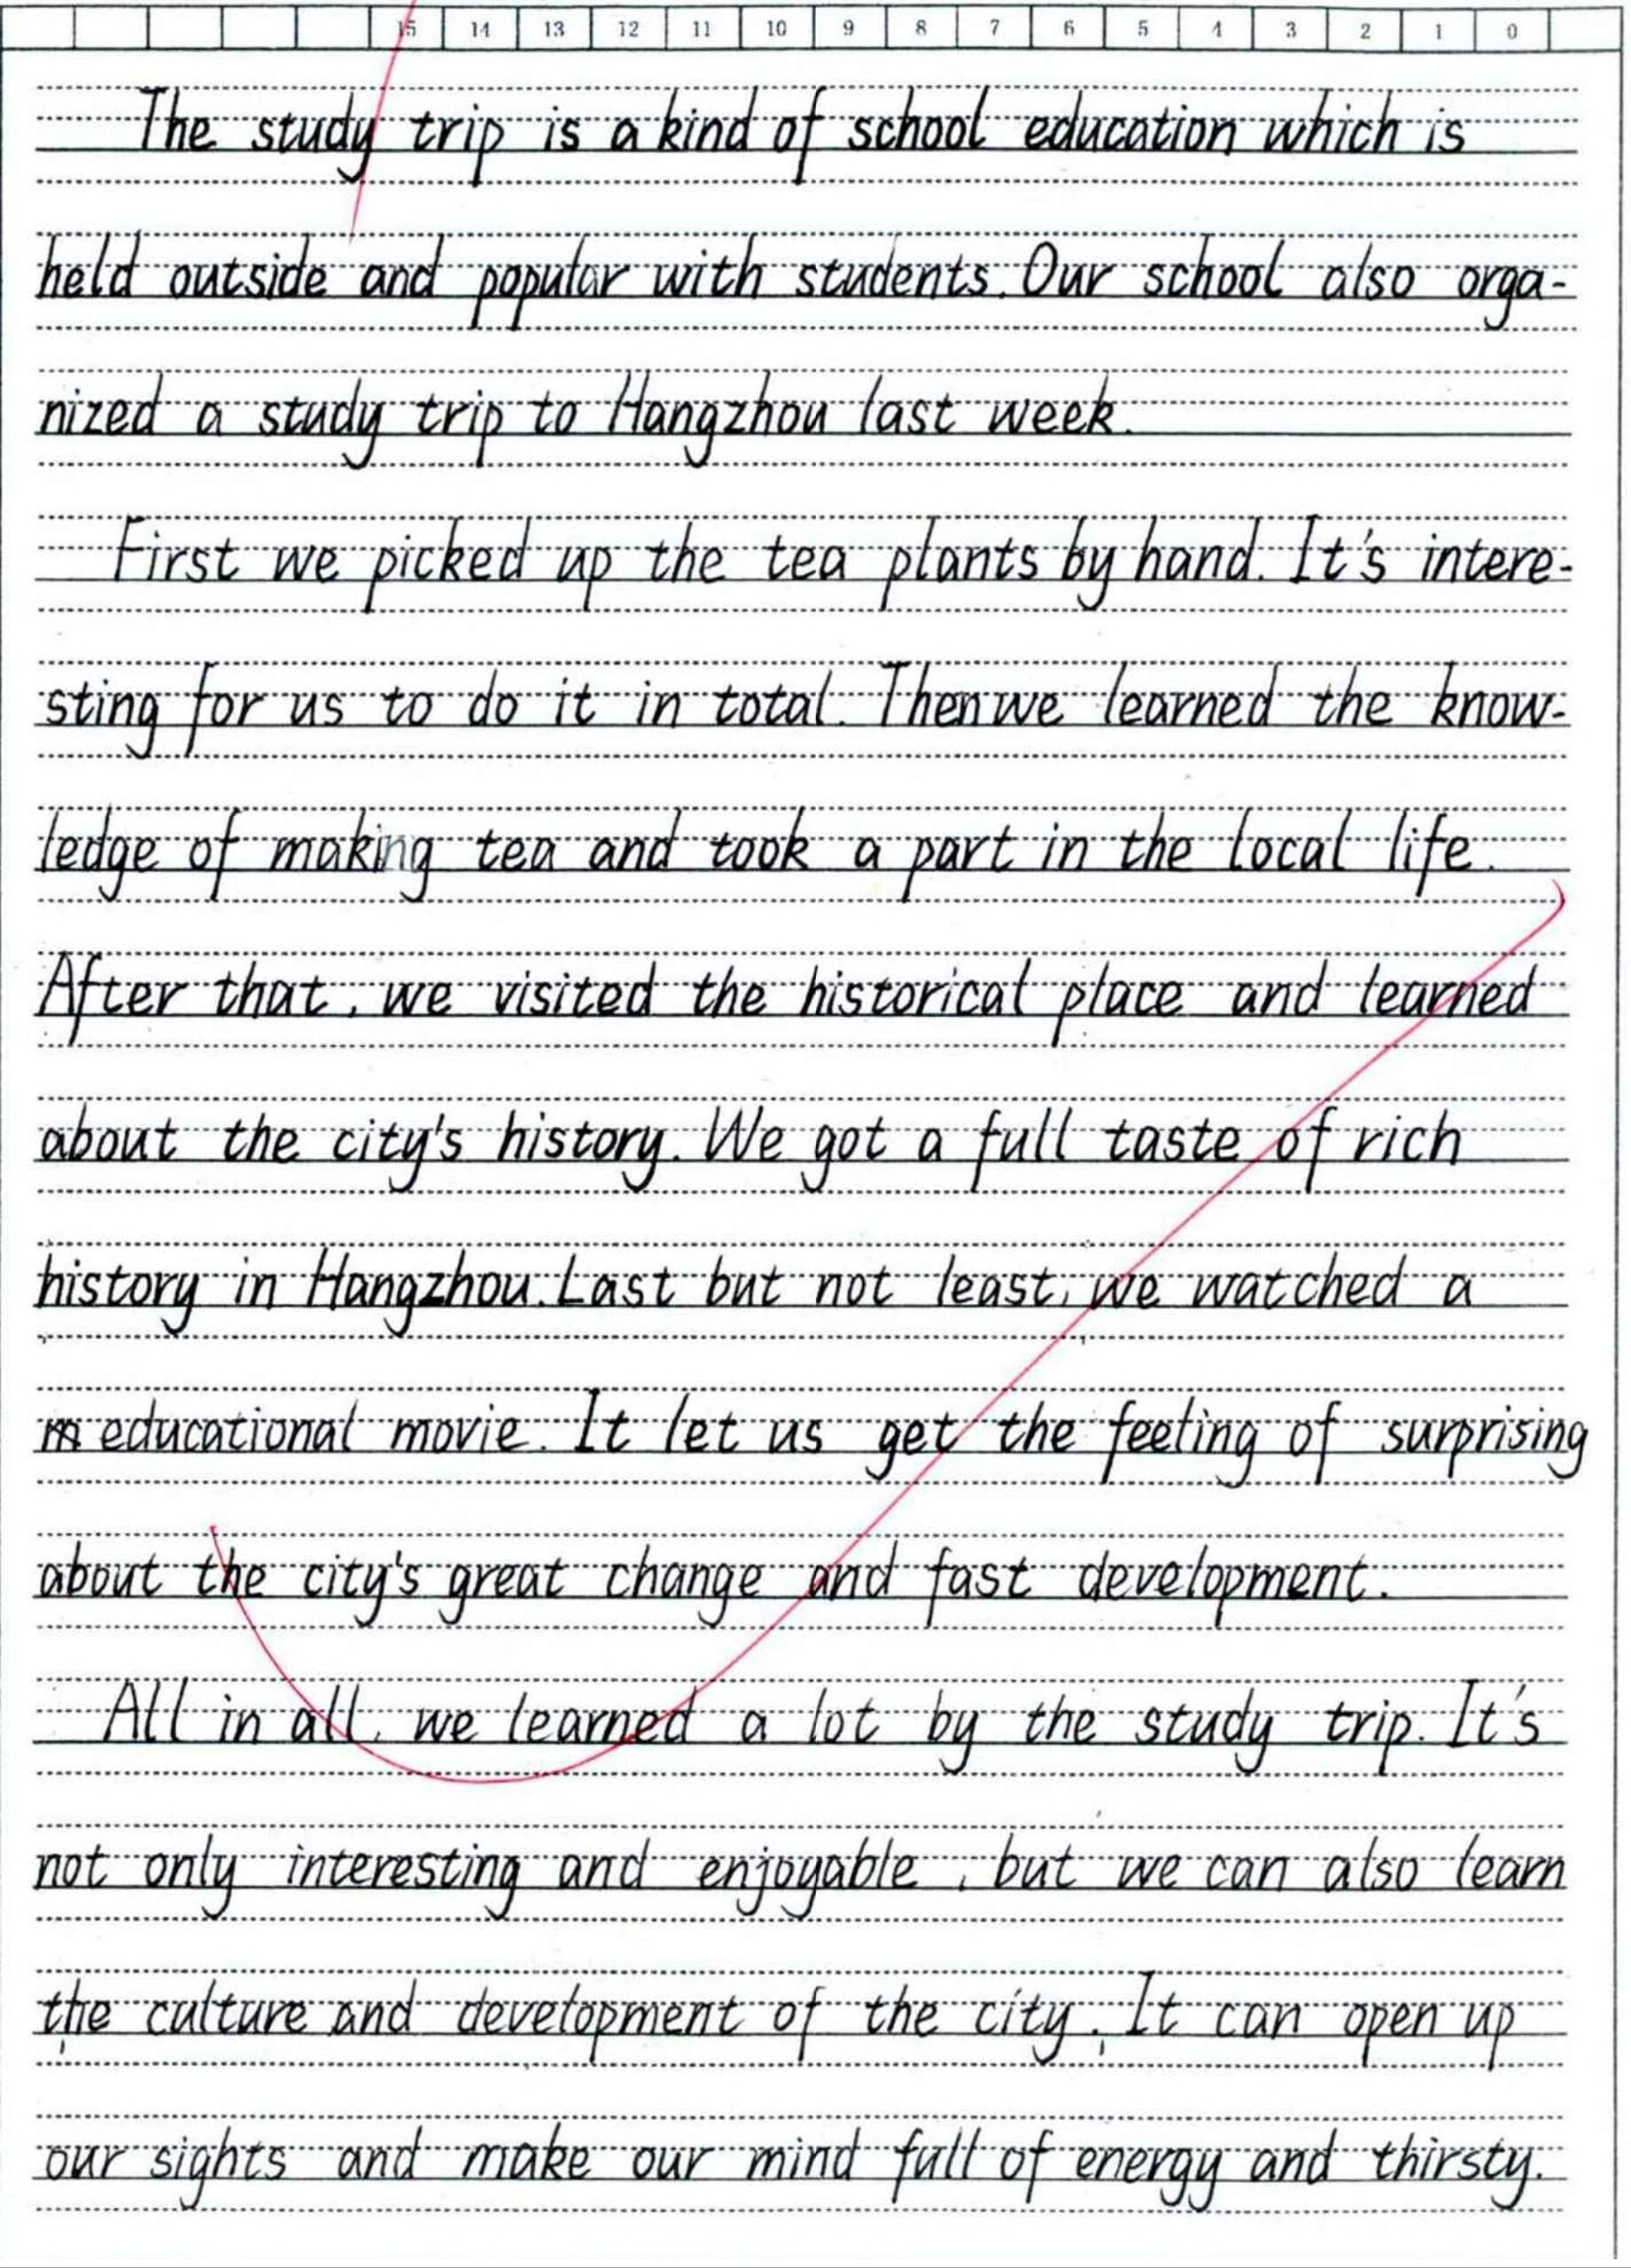 15 14 13 12 11 10 9 8 7 6 5 4 3 2 1 0
The study trip is a kind of school education which is
held outside and popular with students. Our school also orga-
nized a study trip to Hangzhou last week.
First we picked up the tea plants by hand. It's intere-
sting for us to do it in total. Then we learned the know-
ledge of making tea and took a part in the local life.
After that, we visited the historical place and learned
about the city's history. We got a full taste of rich
history in Hangzhou. Last but not least, we watched a
educational movie. It let us get the feeling of surprising
about the city's great change and fast development.
All in all, we learned a lot by the study trip. It's
not only interesting and enjoyable, but we can also learn
the culture and development of the city. It can open up
our sights and make our mind full of energy and thirsty.